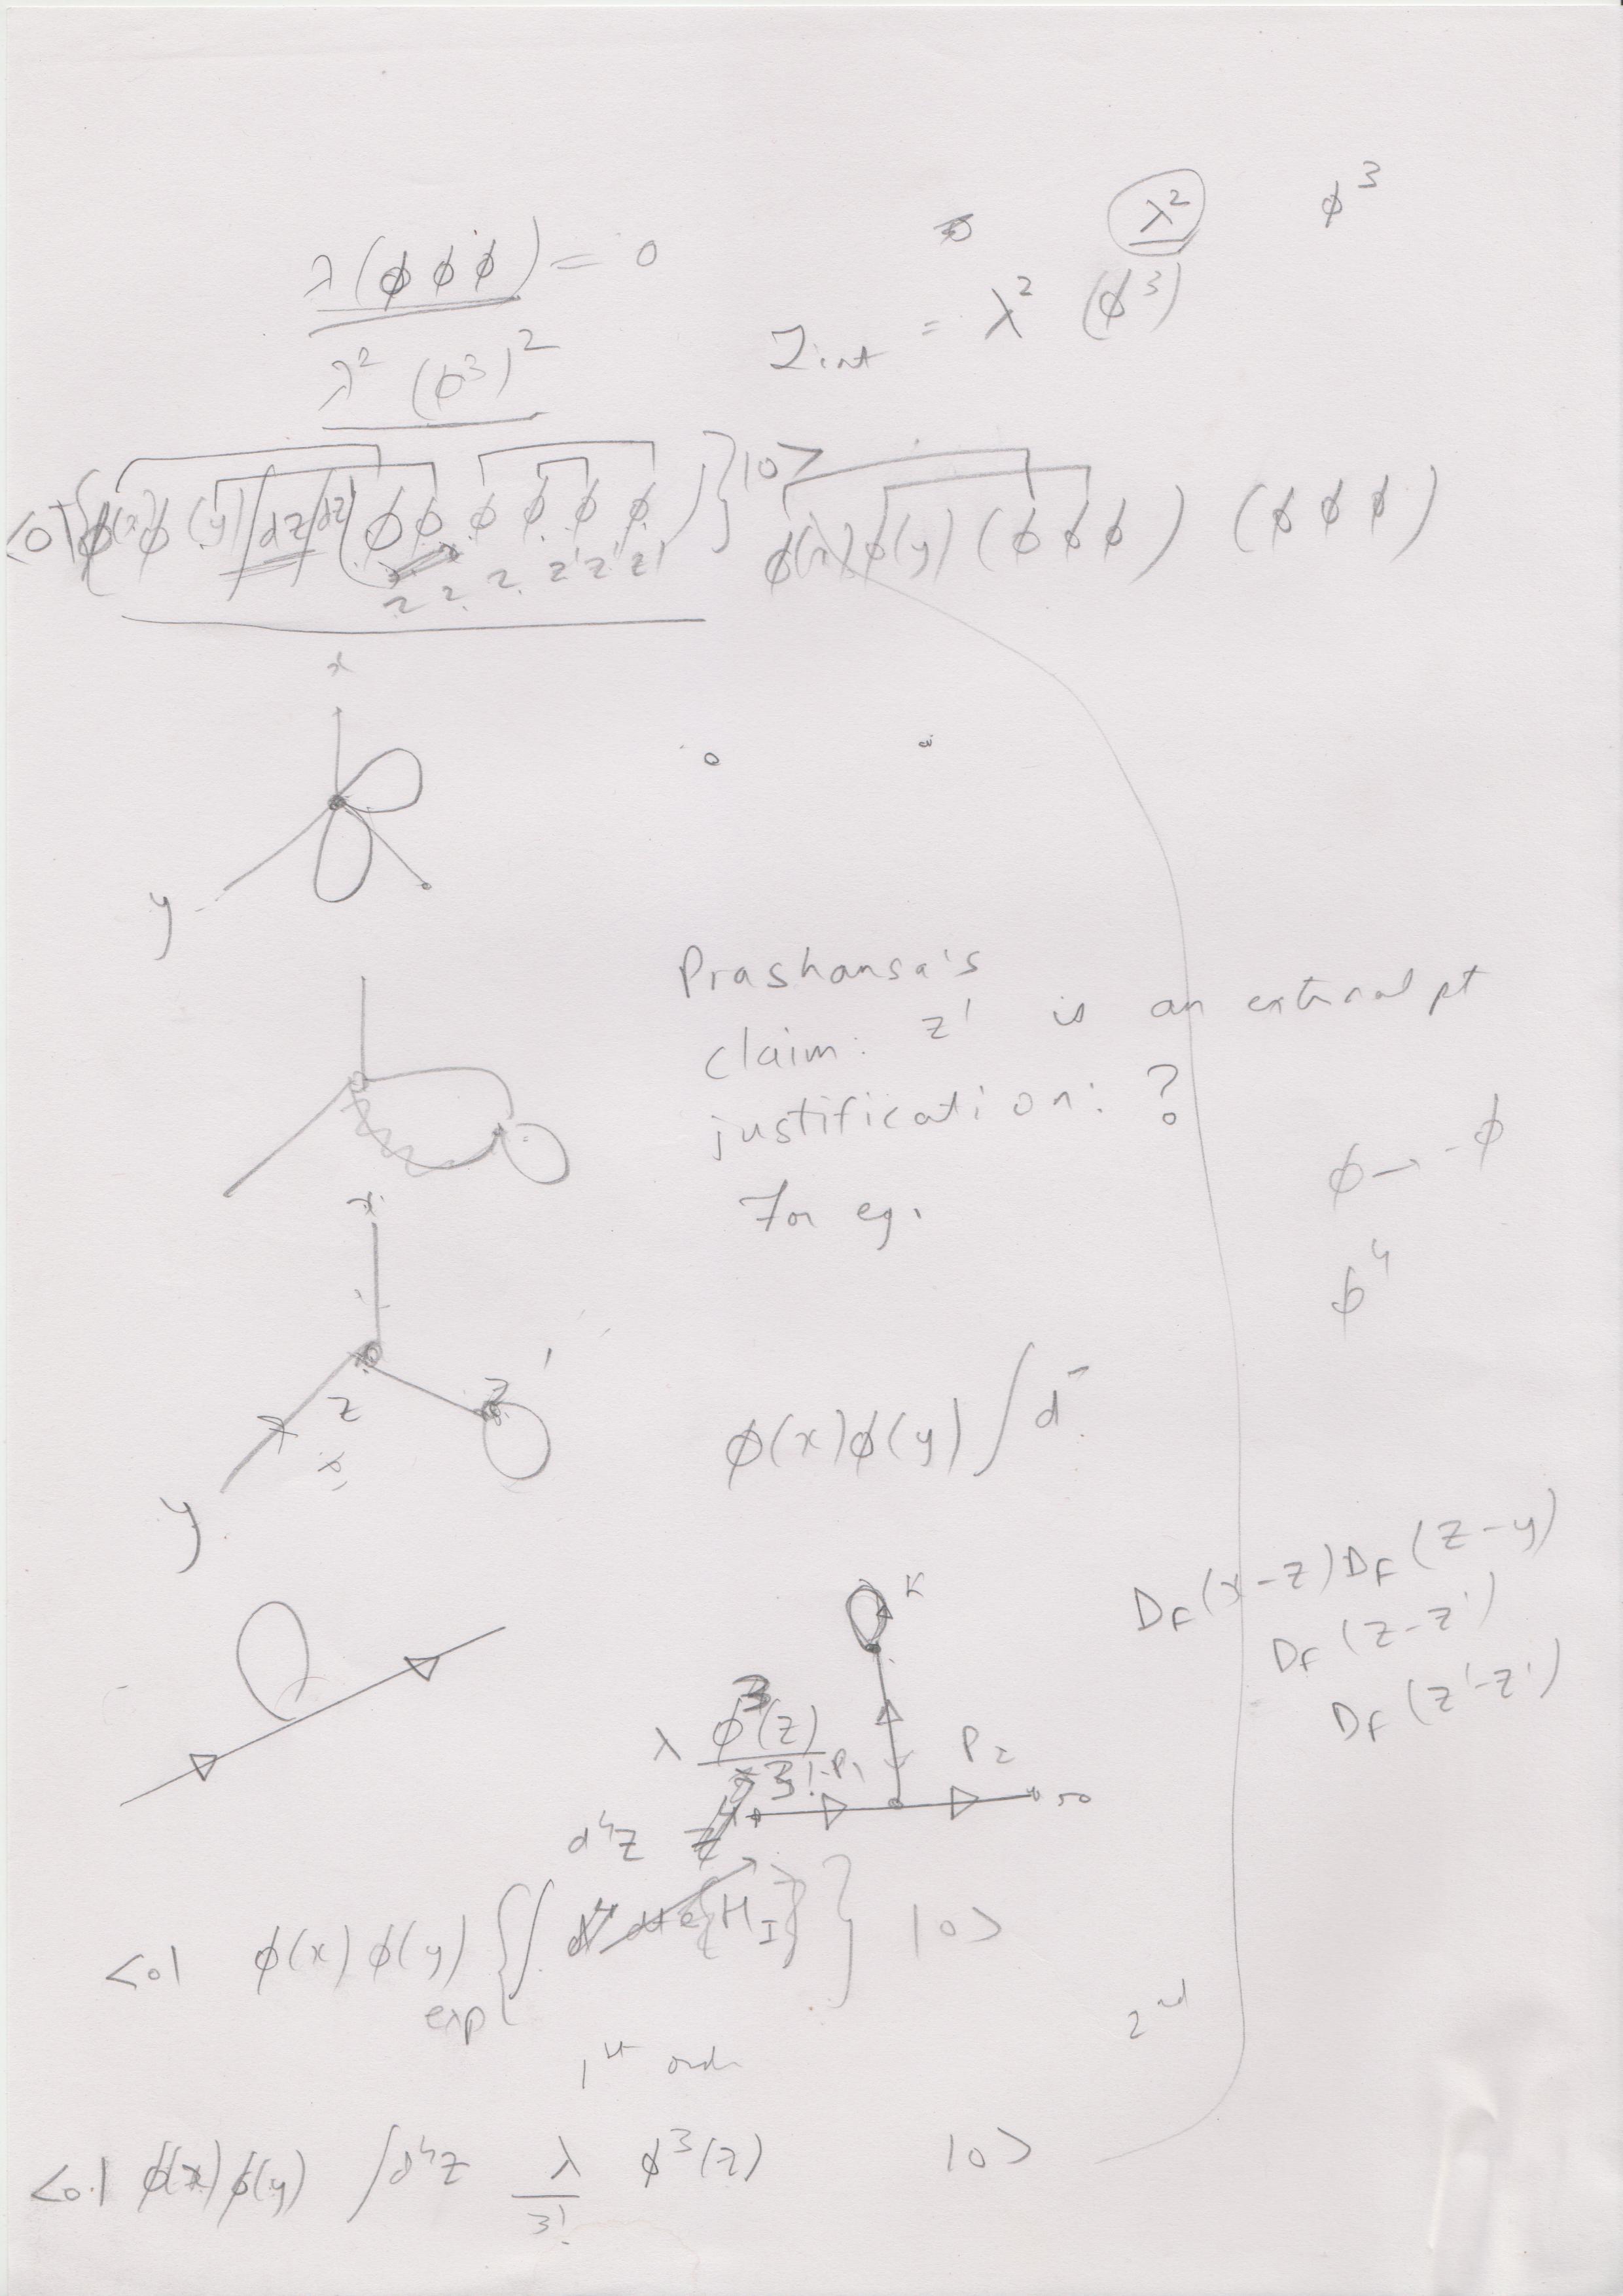 λ(ϕ ϕ ϕ) = 0
λ² (ϕ³)²
λ² ϕ³
Lint = λ² (ϕ³)
<0|T{ϕ(x)ϕ(y)∫dz∫dz'(ϕ ϕ ϕ ϕ ϕ ϕ)}|0>
z z z z' z' z'
ϕ(x)ϕ(y)(ϕ ϕ ϕ) (ϕ ϕ ϕ)
x
y
Prashansa's
claim: z' is an external pt
justification: ?
For eg.
ϕ → -ϕ
ϕ⁴
x
z
z'
y
ϕ(x)ϕ(y)∫d
D_F(x-z)D_F(z-y)
D_F(z-z')
D_F(z'-z')
K
P₁
P₂
λ ϕ³(z)
3!
d⁴z
<0| ϕ(x)ϕ(y) exp{∫ {H_I}} |0>
1st ord
2nd
<0| ϕ(x)ϕ(y) ∫d⁴z λ/3! ϕ³(z) |0>